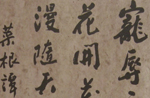 寵辱
花開花
漫隨天
菜根譚